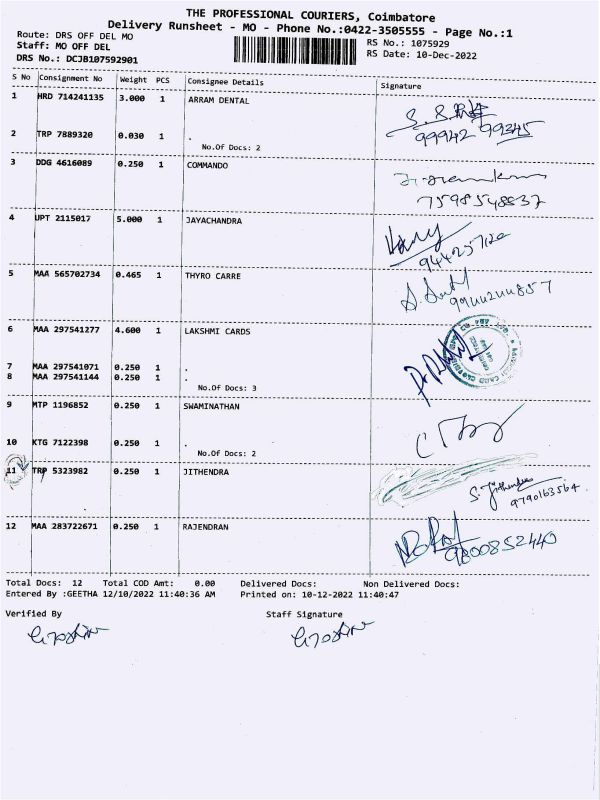 THE PROFESSIONAL COURIERS, Coimbatore
Delivery Runsheet - MO - Phone No.:0422-3505555 - Page No.:1
Route: DRS OFF DEL MO
Staff: MO OFF DEL
DRS No.: DCJB107592901
RS No.: 1075929
RS Date: 10-Dec-2022
S No Consignment No Weight PCS Consignee Details Signature
1 HRD 714241135 3.000 1 ARRAM DENTAL
99942 99345
2 TRP 7889320 0.030 1 .
No.Of Docs: 2
3 DDG 4616089 0.250 1 COMMANDO
7598548837
4 UPT 2115017 5.000 1 JAYACHANDRA
5 MAA 565702734 0.465 1 THYRO CARRE
6 MAA 297541277 4.600 1 LAKSHMI CARDS
7 MAA 297541071 0.250 1 .
8 MAA 297541144 0.250 1 .
No.Of Docs: 3
9 MTP 1196852 0.250 1 SWAMINATHAN
10 KTG 7122398 0.250 1 .
No.Of Docs: 2
11 TRP 5323982 0.250 1 JITHENDRA
S. Jithendra
9790163564
12 MAA 283722671 0.250 1 RAJENDRAN
9800852440
Total Docs: 12 Total COD Amt: 0.00 Delivered Docs: Non Delivered Docs:
Entered By :GEETHA 12/10/2022 11:40:36 AM Printed on: 10-12-2022 11:40:47
Verified By Staff Signature